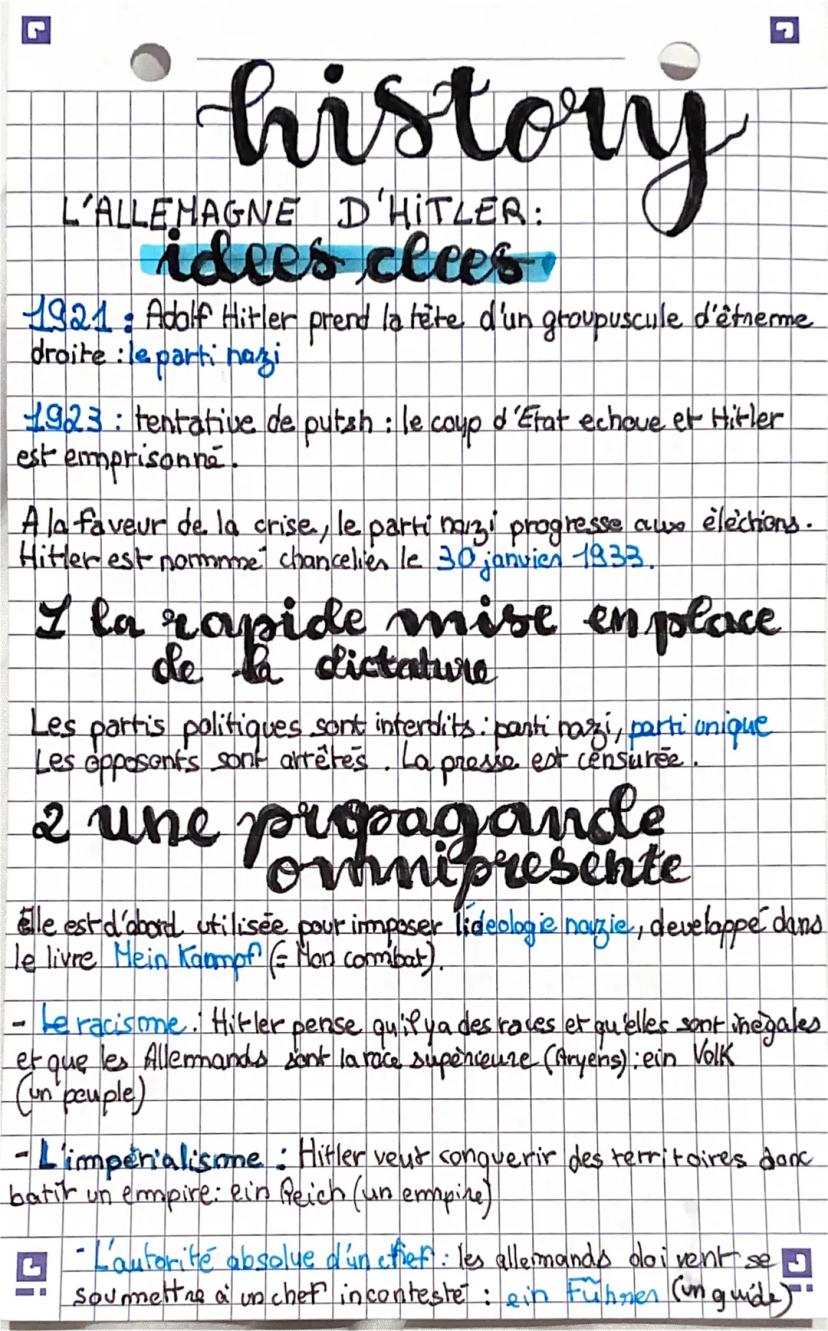 history
L'ALLEMAGNE D'HiTLER:
idees clees
1921 : Adolf Hitler prend la tête d'un groupuscule d'êtrerme
droite : le parti nazi
1923 : tentative de putsh : le coup d'Etat echoue et Hitler
est emprisonné.
A la faveur de la crise, le parti nazi progresse aux éléctions.
Hitler est nommé chancelier le 30 janvier 1933.
1 la rapide mise en place
de la dictature
Les partis politiques sont interdits : parti nazi, parti unique
Les opposants sont arrêtés. La presse est censurée.
2 une propagande
omnipresente
Elle est d'abord utilisée pour imposer l'ideologie nazie, developpé dans
le livre Mein Kampf (= Mon combat).
- Le racisme : Hitler pense qu'il y a des races et qu'elles sont inégales
et que les Allemands sont la race supérieure (Aryens) : ein Volk
(un peuple)
- L'impérialisme : Hitler veut conquerir des territoires donc
batir un empire : ein Reich (un empire)
- L'autorité absolue d'un chef : les allemands doivent se
soumettre à un chef incontesté : ein Führer (un guide)